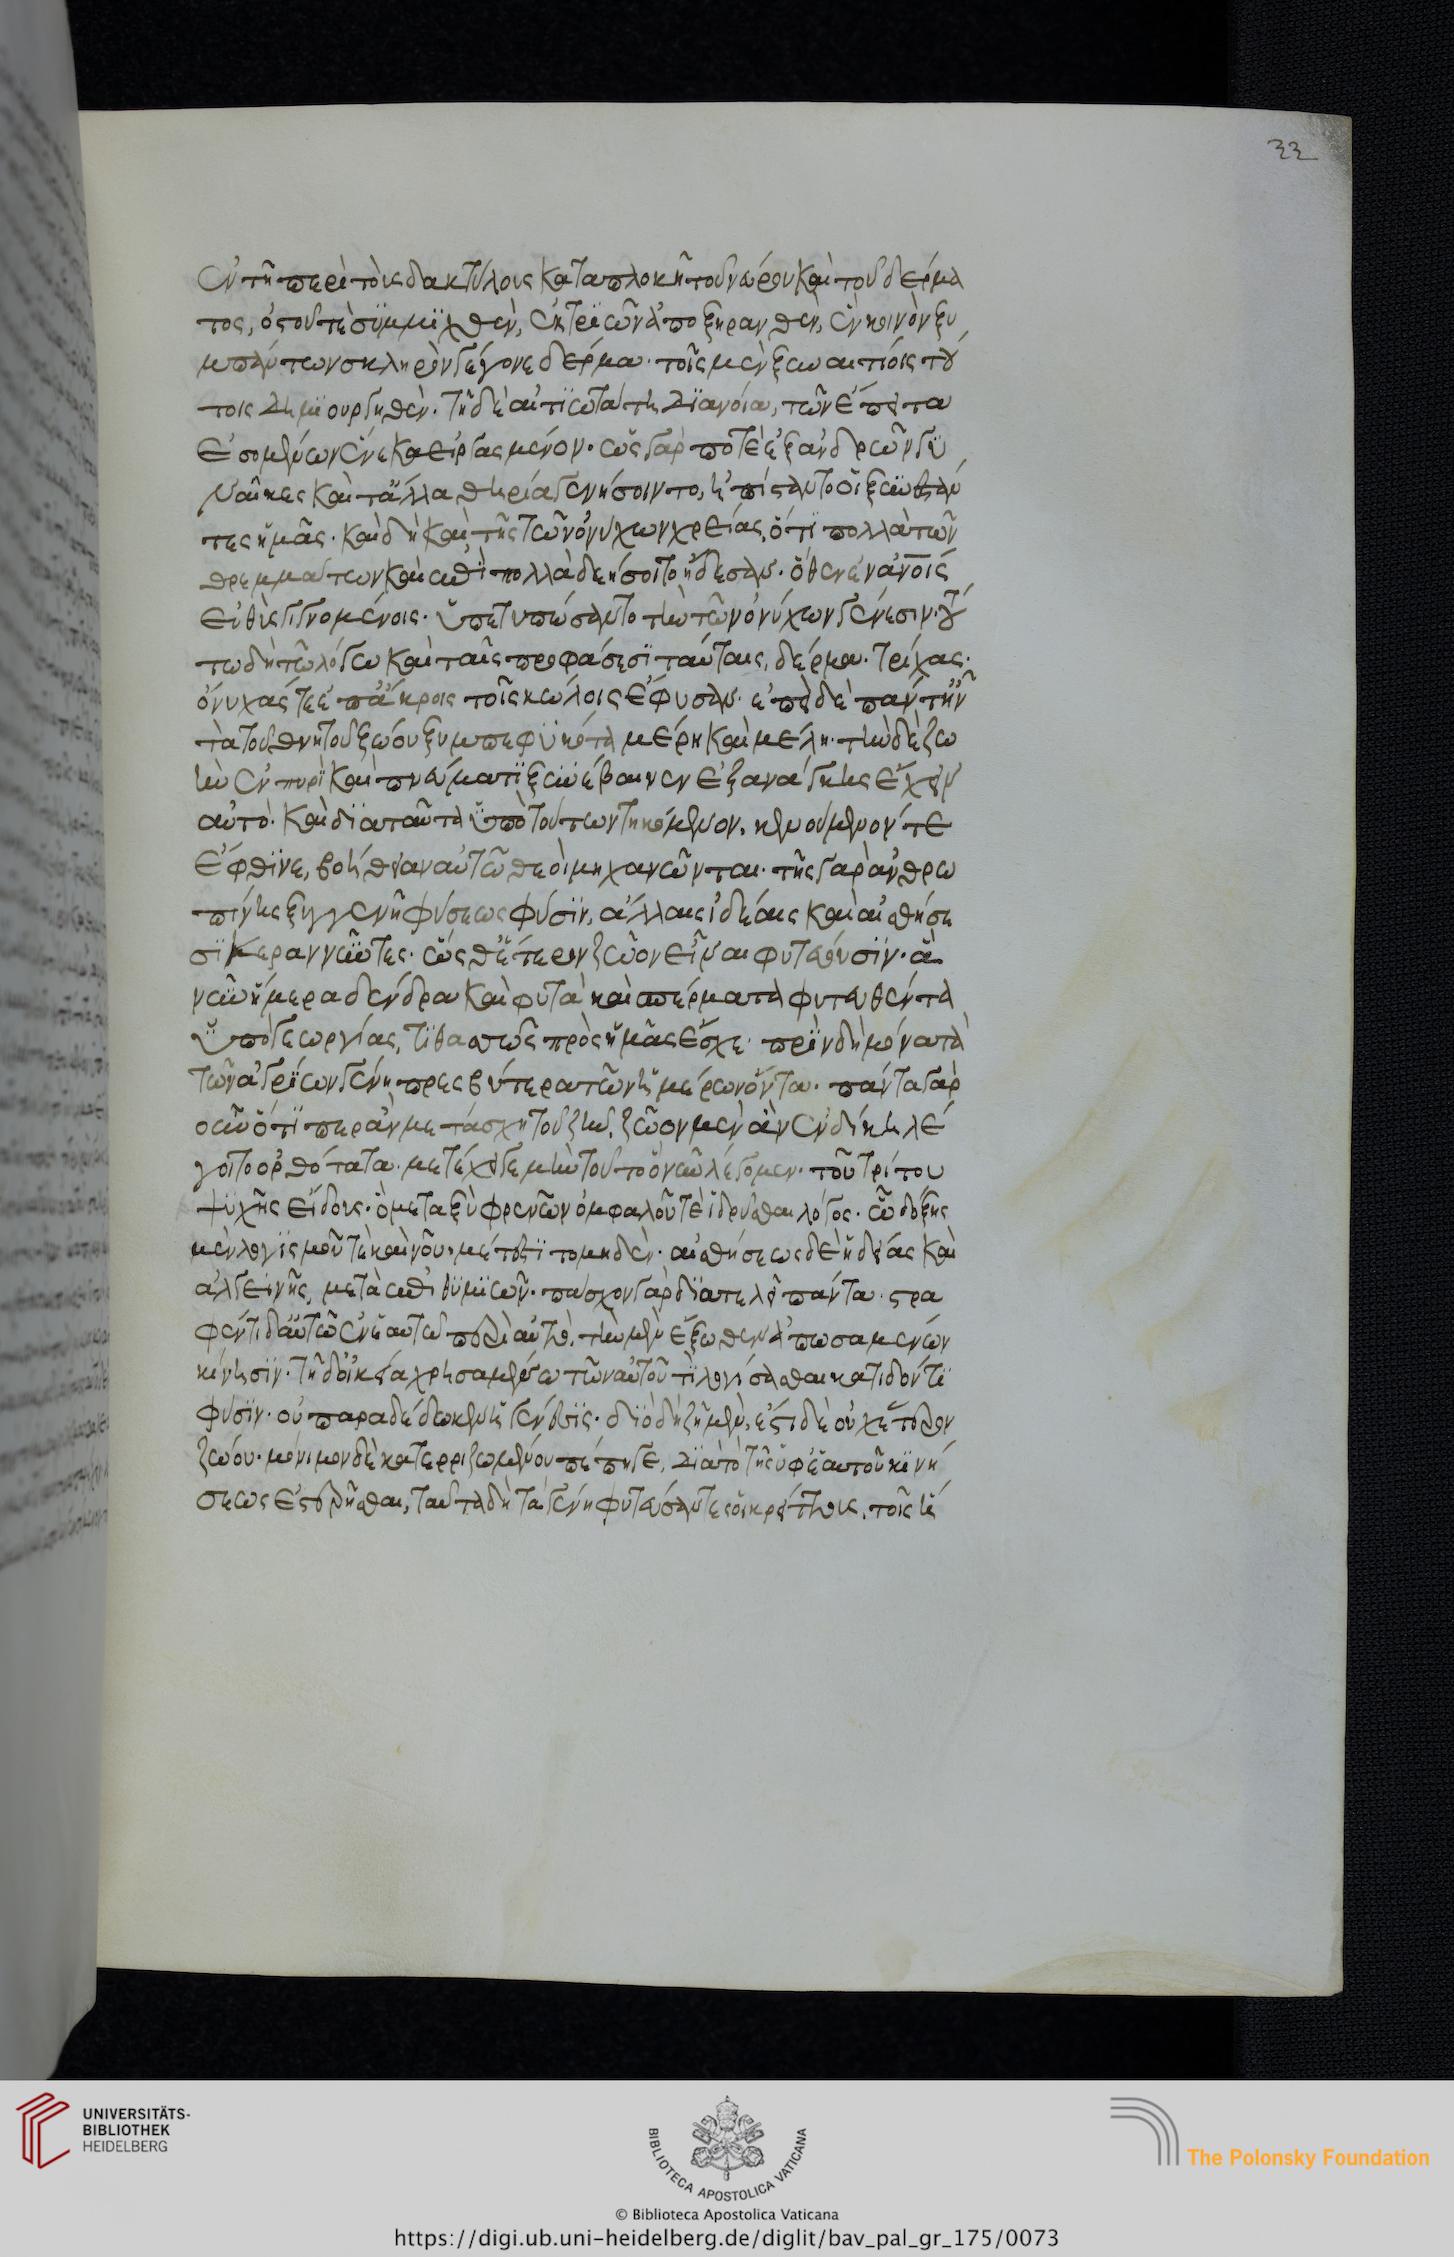 ἐν τῆ περὶ τοὺς δακτύλους καταπλοκῆ τοῦ νεύρου καὶ τοῦ δέρμα
τος, ὀστοῦ τὲ συμμιχθὲν, ἐκ τριῶν ἀποξηρανθὲν, ἓν κοινὸν ξυ
μπάντων σκληρὸν γέγονε δέρμα· τοῖς μὲν ξυναιτίοις τού
τοις δημϊουργηθέν· τῆ δὲ αἰτϊωτάτη διανοία, τῶν ἔπειτα
ἐσομένων ἕνεκα εἰργασμένον· ὡς γάρ ποτὲ ἐξ ἀνδρῶν γϋ
ναῖκες καὶ τἄλλα θηρία γενήσοιντο, ἠπίσταντο οἱ ξυνϊστάν
τες ἡμᾶς· καὶ δὴ καὶ τῆς τῶν ὀνύχων χρείας, ὅτι πολλὰ τῶν
θρεμμάτων καὶ ἐπὶ πολλὰ δεήσοιτο ἤδεσαν· ὅθεν ἐν ἀνοις
εὐθὺς γιγνομένοις· ὑπετυπώσαντο τὴν τῶν ὀνύχων γένεσιν· τού
τω δὴ τῶ λόγω καὶ ταῖς προφάσεσϊ ταύταις, δέρμα· τρίχας·
ὄνυχάς τε ἐπ' ἄκροις τοῖς κώλοις ἔφυσαν· ἐπεὶ δὲ πάντ' ἦν
τὰ τοῦ θνητοῦ ζώου ξυμπεφυκότα μέρη καὶ μέλη· τὴν δὲ ζω
ὴν ἐν πυρὶ καὶ πνεύματϊ ξυνέβαινεν ἐξ ἀνάγκης ἔχειν
αὐτό· καὶ διὰ ταῦτα ὑπὸ τούτων τηκόμενον, κενούμενόν τε
ἔφθϊνε, βοήθειαν αὐτῶ θεοὶ μηχανῶνται· τῆς γὰρ ἀνθρω
πίνης ξυγγενῆ φύσεως φύσϊν, ἄλλαις ἰδέαις καὶ αἰσθήσε
σϊ κεραννύντες· ὥσθ' ἕτερον ζῶον εἶναι φυτεύουσϊν· ἃ
νῦν ἥμερα δένδρα καὶ φυτὰ καὶ σπέρματα φυτευθέντα
ὑπὸ γεωργίας, τϊθασῶς πρὸς ἡμᾶς ἔσχε· πρϊν δὴ μόνα τὰ
τῶν ἀγρίων γένη πρεσβύτερα τῶν ἡμέρων ὄντα· πάντα γὰρ
οὖν ὅ τί περ ἂν μετάσχη τοῦ ζῆν, ζῶον μὲν ἂν ἐν δίκη λέ
γοιτο ὀρθότατα· μετέχει γε μὴν τοῦτο ὃ νῦν λέγομεν· τοῦ τρίτου
ψυχῆς εἴδους· ὃ μεταξὺ φρενῶν ὀμφαλοῦ τὲ ἱδρῦσθαι λόγος· ὧ δόξης
μὲν λογισμοῦ τὲ καὶ νοῦ, μέτεστϊ το μηδέν· αἰσθήσεως δὲ ἡδείας καὶ
ἀλγεινῆς, μετὰ ἐπιθυμϊῶν· πάσχον γὰρ δϊατελεῖ πάντα· στρα
φέντι δ' αὐτῶ ἐν ἑαυτῶ περὶ αὐτὸ, τὴν μὲν ἔξωθεν ἀπωσαμένων
κίνησϊν· τῆ δ' οἰκεία χρησαμένω τῶν αὐτοῦ τϊ λογίσασθαι κατιδόντϊ
φύσϊν· οὐ παραδέδωκεν ἡ γένεσϊς· δϊὸ δὴ ζῆ μὲν, ἔστι δὲ οὐχ ἕτερον
ζώου· μόνιμον δὲ κατερριζωμένον πέπηγε, διὰ τὸ τῆς ὑφ' ἑαυτοῦ κϊνή
σεως ἐστερῆσθαι, ταῦτα δὴ τὰ γένη φυτεύσαντες οἱ κρείττους, τοῖς ἥ